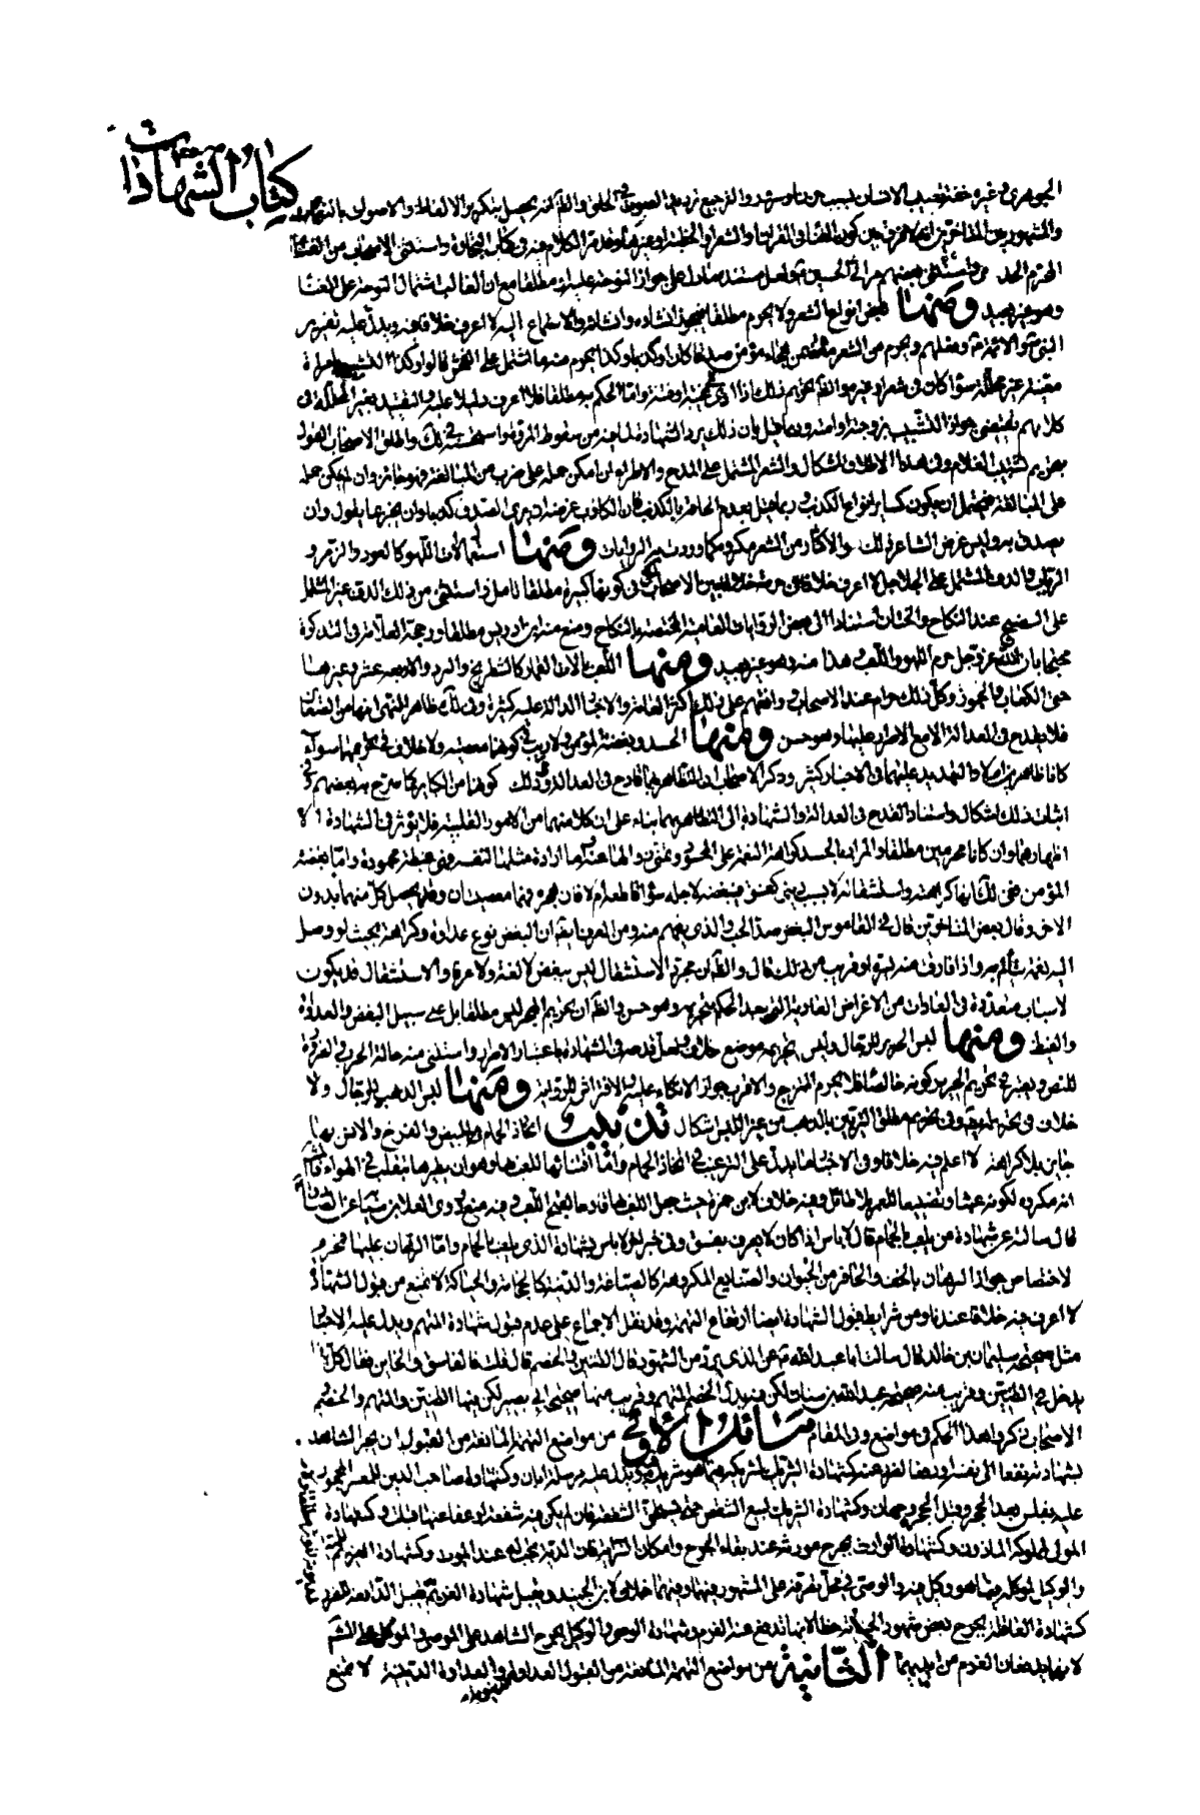 كتاب الشهادات
الجوهري وغيره خفة تصيب الانسان لسبب حزن او سرور والترجيع ترديد الصوت في الحلق والظ انه يحصل بتكرير الالفاظ والاصوات بالنغمات
والمشهور بين المتاخرين انه لا فرق بين كون الغناء في القران او الشعر او الخطبة او غيرها وقد مر الكلام فيه في كتاب التجارة واستثنى الاصحاب من الغناء
المحرم الحداء واستثنى بعضهم مراثي الحسين ع ولعل مستنده ما دل على جواز النوحة عليه مطلقا مع ان الغالب اشتمال النوحة على الغناء
وهو غير بعيد ومنها بعض انواع الشعر ولا يحرم مطلقا فيجوز انشاده وانشاؤه والاستماع اليه لا اعرف خلافا فيه ويدل عليه تقرير
النبي ص والائمة ع وفعلهم ويحرم من الشعر ما تضمن هجاء مؤمن صدقا كان او كذبا وكذا يحرم منه ما اشتمل على الفحش قالوا وكذا التشبيب بامراة
معينة غير محللة سواء كان في شعر او غيره والظ تحريم ذلك اذا واما الحكم به مطلقا فلا اعرف دليلا عليه والتقييد بغير المحللة في
كلامهم يقتضي جواز التشبيب بزوجته او امته وربما قيل بان ذلك يرد الشهادة لما فيه من سقوط المروة واستحسنه في لك واطلق الاصحاب القول
بتحريم تشبيب الغلام وفي هذا الاطلاق اشكال والشعر المشتمل على المدح والاطراء ان امكن حمله على ضرب من المبالغة فهو جائز وان لم يكن حمله
على المبالغة فيحتمل ان يكون كساير انواع الكذب وربما قيل بعدم الحاقه بالكذب فان الكاذب غرضه ان يرى الصدق كذبا وان يخبر بما يقول وان
يصدق به وليس غرض الشاعر ذلك والاكثار من الشعر مكروه كما وردت به الروايات ومنها استعمال الات اللهو كالعود والزمر و
الرباب والدف المشتمل على الجلاجل لا اعرف خلافا في حرمته بين الاصحاب وفي كونها كبيرة مطلقا تامل واستثنى من ذلك الدف غير المشتمل
على الصنج عند النكاح والختان استنادا الى بعض الروايات العامية المختصة بالنكاح ومنع منه ابن ادريس مطلقا ورجحه العلامة في التذكرة
محتجا بان الله عز وجل حرم اللهو واللعب وهذا منه وهو غير بعيد ومنها اللعب بالات القمار كالشطرنج والنرد والاربعة عشر وغيرها
حتى الكعاب والجوز وكل ذلك حرام عند الاصحاب ووافقهم على ذلك اكثر العامة والاخبار الدالة عليه كثيرة وفي لك ظاهر النهي انها من الصغائر
فلا يقدح في العدالة الا مع الاصرار عليها وهو حسن ومنها الحسد وبغضة المؤمن ولا ريب في كونهما معصية ولا خلاف في تحريمهما سواء
كانا ظاهرين ام لا والتهديد عليهما في الاخبار كثير وذكر الاصحاب ان التظاهر بهما قادح في العدالة وفي لك كونهما من الكبائر كما صرح به بعضهم وفي
اثبات ذلك اشكال واستناد القدح في العدالة والشهادة الى التظاهر بهما بناء على ان كلا منهما من الامور القلبية فلا يؤثر في الشهادة الا
اظهارهما وان كانا محرمين مطلقا والمراد بالحسد كراهة النعمة على المحسود وتمني زوالها عنه اما ارادة مثلها لنفسه فهي غبطة محمودة واما بغضة
المؤمن ففي لك انها كراهته واستثقاله لا بسبب ديني كفسق فيبغضه لاجله سواء قاطعه ام لا فان هجره فهما معصيتان وقد يحصل كل منهما بدون
الاخر وقال بعض المتاخرين قال في القاموس البغض ضد الحب والذي يفهم منه ومن العرف ايضا ان البغض نوع عداوة وكراهة بحيث لو وصل
اليه نعمة يتالم به واذا فارق منه يسر به او قريب من ذلك قال والظ ان مجرد الاستثقال ليس ببغض لا لغة ولا عرفا والاستثقال قد يكون
لاسباب متعددة في العادات من الاغراض العادية والظ ان تحريم الهجر ليس مطلقا بل على سبيل البغض والعداوة
والغيظ ومنها لبس الحرير للرجال وليس تحريمه موضع خلاف ولعل قدحه في الشهادة باعتبار الاصرار واستثنى منه حالة الحرب والضرورة
للنص ويعتبر في تحريم الحرير كونه خالصا فلا يحرم الممتزج والاقرب جواز الاتكاء عليه والافتراش للرواية ومنها لبس الذهب للرجال ولا
خلاف في تحريمه وفي تحريم مطلق التزيين بالذهب من غير اللبس اشكال تذنيب اتخاذ الحمام للبيض والفرخ والانس بها
جايز بلا كراهة لا اعلم فيه خلافا وفي الاخبار ما يدل على الترغيب في اتخاذ الحمام واما اقتنائها للعب بها وهو ان يطيرها لتنقلب في الهواء
انه مكروه لكونه عبثا وتضييعا للعمر بلا طائل وفيه خلاف لابن ادريس حيث جعل اللعب بها قادحا لقبح اللعب وفيه منع وروى العلا بن سيابة عن الصادق ع
قال سالته عن شهادة من يلعب بالحمام قال لا باس اذا كان لا يعرف بفسق وفي خبر اخر لا باس بشهادة الذي يلعب بالحمام واما الرهان عليها فمحرم
لاختصاص جواز الرهان بالخف والحافر من الحيوان والصنايع المكروهة كالصياغة والدنية كالحجامة والحياكة لا يمنع من قبول الشهادة
لا اعرف فيه خلافا عندنا ومن شرايط قبول الشهادة ايضا ارتفاع التهمة وقد نقل الاجماع على عدم قبول شهادة المتهم ويدل عليه الاخبار
مثل صحيحة سليمان بن خالد قال سالت ابا عبد الله ع عن الذي يرد من الشهود قال الظنين والخصم قال قلت فالفاسق والخاين فقال كل هذا
يدخل في الظنين وقريب منه صحيحة عبد الله بن سنان لكن فيه بدل الخصم المتهم وقريب منها صحيحة ابي بصير لكن فيها الظنين والمتهم والخصم
الاصحاب ذكروا هذا الحكم في مواضع وفي المقام مسائل الاولى من مواضع التهمة المانعة من القبول ان يجر الشاهد
بشهادته نفعا الى نفسه او يدفع ضررا عنه كشهادة الشريك لشريكه فيما هو شريك فيه ويدل عليه مرسلة ابان وكشهادة صاحب الدين للمعسر المحجور
عليه بفلس بعد الحجر وقبل الحجر وجهان وكشهادة الشريك لبيع الشقص فان لم يكن فيه شفعة او عفا عنها قبلت وكشهادة
المولى لمملوكه الماذون وكشهادة الوارث بجرح مورثه عند بقاء الجرح وامكان السراية فان الدية يجب له عند الموت وكشهادة الغريم للميت
والوكيل لموكله فيما هو وكيل فيه والوصي في محل تصرفه على المشهور فيهما وفيهما خلاف لابن الجنيد ومن قبيل شهادة الدافعة للضرر
كشهادة العاقلة بجرح بعض شهود الجناية خطا لانها تدفع عنه الغرم وشهادة الوصي والوكيل بجرح الشاهد على الموصي والموكل
لانهما يدفعان الغرم من اليهما الثانية من مواضع التهمة المانعة من القبول العداوة والعداوة الدينية لا تمنع